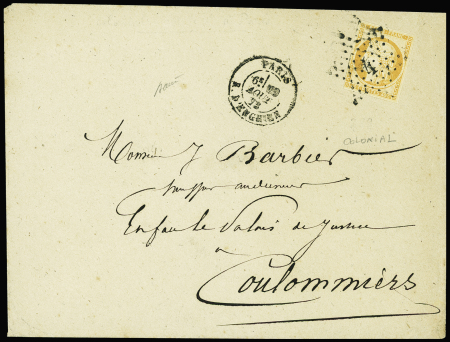 PARIS
6E/
AOUT
73
R. D'ENGHIEN
4
COLONIAL
Monsieur J Barbier
En face le Palais de Justice
à
Coulommiers